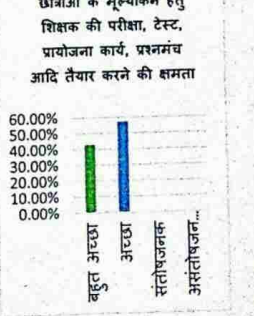 छात्राओं के मूल्यांकन हेतु
शिक्षक की परीक्षा, टेस्ट,
प्रायोजना कार्य, प्रश्नमंच
आदि तैयार करने की क्षमता
60.00%
50.00%
40.00%
30.00%
20.00%
10.00%
0.00%
बहुत अच्छा
अच्छा
संतोषजनक
असंतोषजन...